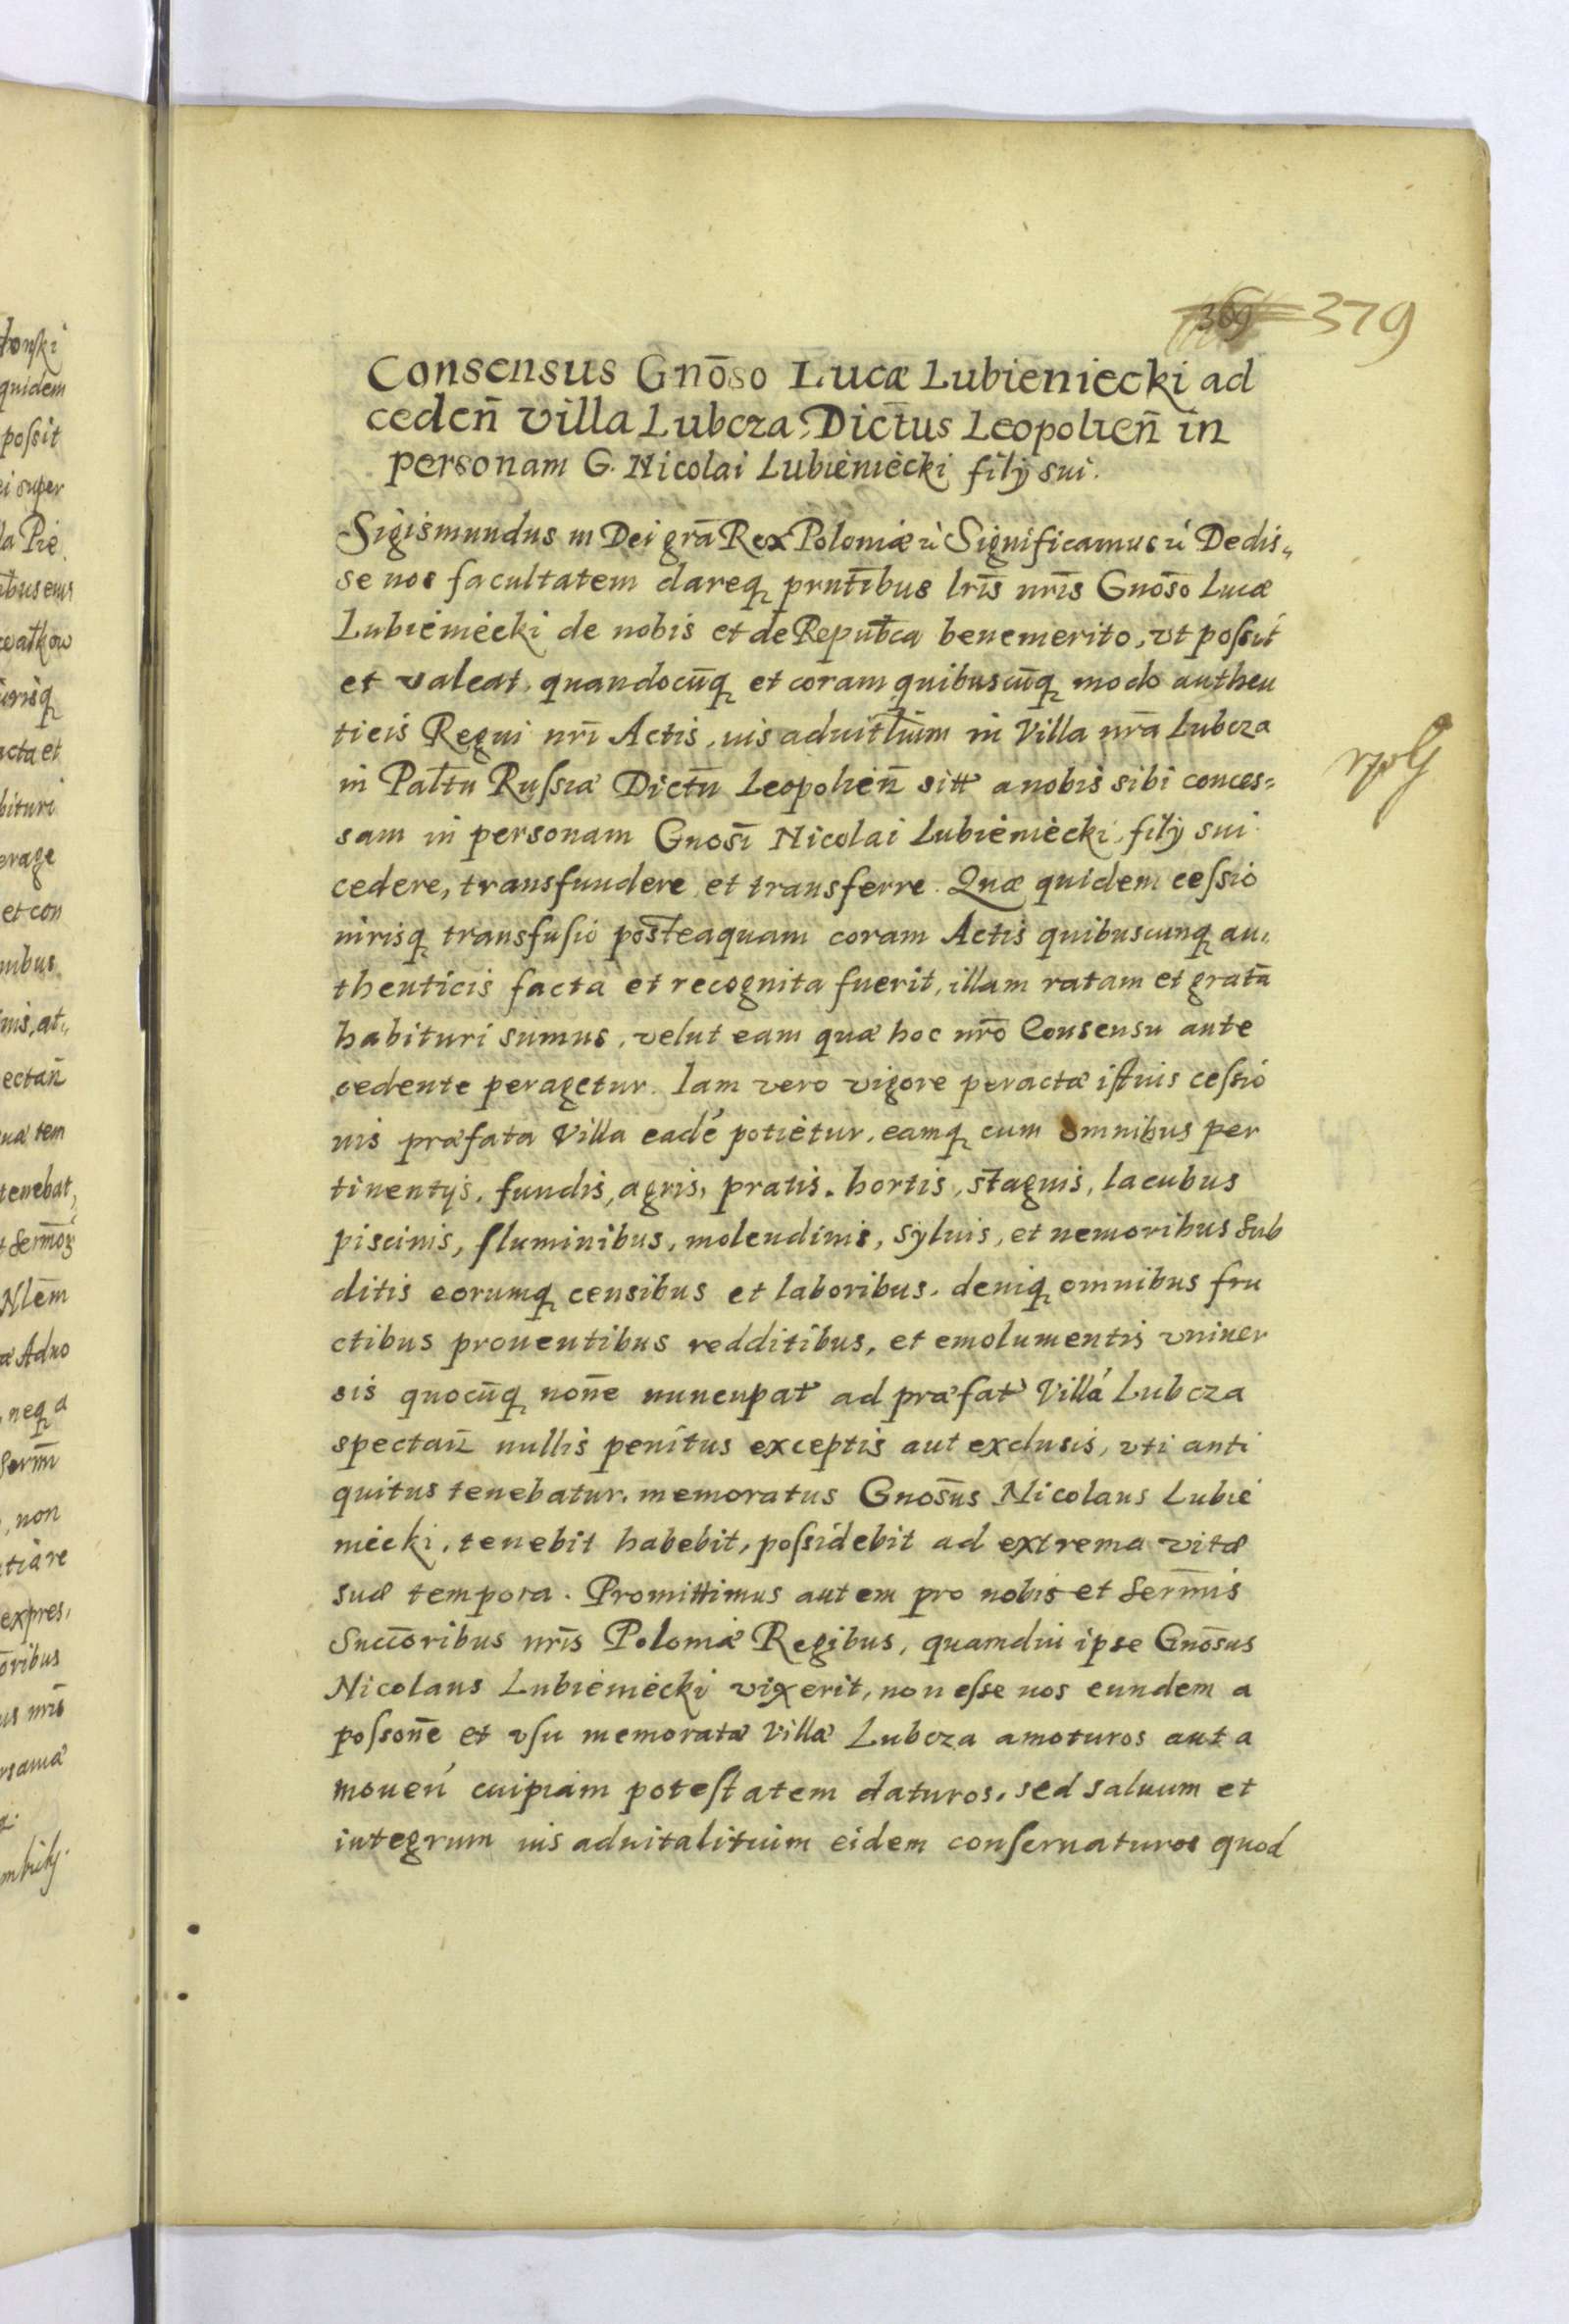 369 379
Consensus Gnōso Lucæ Lubieniecki ad
cedeñ villa Lubcza, Dict̄us Leopolieñ in
personam G. Nicolai Lubieniecki filÿ sui.
Sigismundus III Dei grā Rex Poloniæ ù Significamus ù Dedis„
se nos facultatem dareq prntībus lrīs nrīs Gnōso Lucæ
Lubieniecki de nobis et de Repub̄ca benemerito, vt poſsit
et valeat quandocūq et coram quibuscūq modo authen
ticis Regni nrī Actis, ius aduitl̄ium in Villa nrā Lubcza
in Palt̄u Ruſsiæ Dictū Leopolieñ sitt a nobis sibi conces=
sam in personam Gnosī Nicolai Lubieniecki, filÿ sui
cedere, transfundere et transferre. Quæ quidem ceſsio
iurisq transfuſio posteaquam coram Actis quibuscunq au„
thenticis facta et recognita fuerit, illam ratam et gratā
habituri sumus, velut eam quæ hoc nrō Consensu ante
cedente peragetur. Iam vero vigore peractæ iſtius ceſsio
nis præfata Villa eadé potietur, eamq cum omnibus per
tinentÿs, fundis, agris, pratis, hortis, stagnis, lacubus
piscinis, fluminibus, molendinis, syluis, et nemoribus sub
ditis eorumq censibus et laboribus, deniq omnibus fru
ctibus prouentibus redditibus, et emolumentis vniuer
sis quocūq noñe nuncupat ad præfat Villá Lubcza
spectañ nullis penitus exceptis aut exclusis, vti anti
quitus tenebatur, memoratus Gnosūs Nicolaus Lubie
niecki, tenebit habebit, poſsidebit ad extrema vitæ
suæ tempora. Promittimus autem pro nobis et Serm̄is
Succōribus nrīs Poloniæ Regibus, quamdiu ipse Gnōsus
Nicolaus Lubieniecki vixerit, non eſse nos eundem a
poſsoñe et vſu memoratæ Villæ Lubcza amoturos aut a
mouen cuipiam poteſtatem daturos, sed saluum et
integrum ius aduitalitium eidem conſeruaturos quod